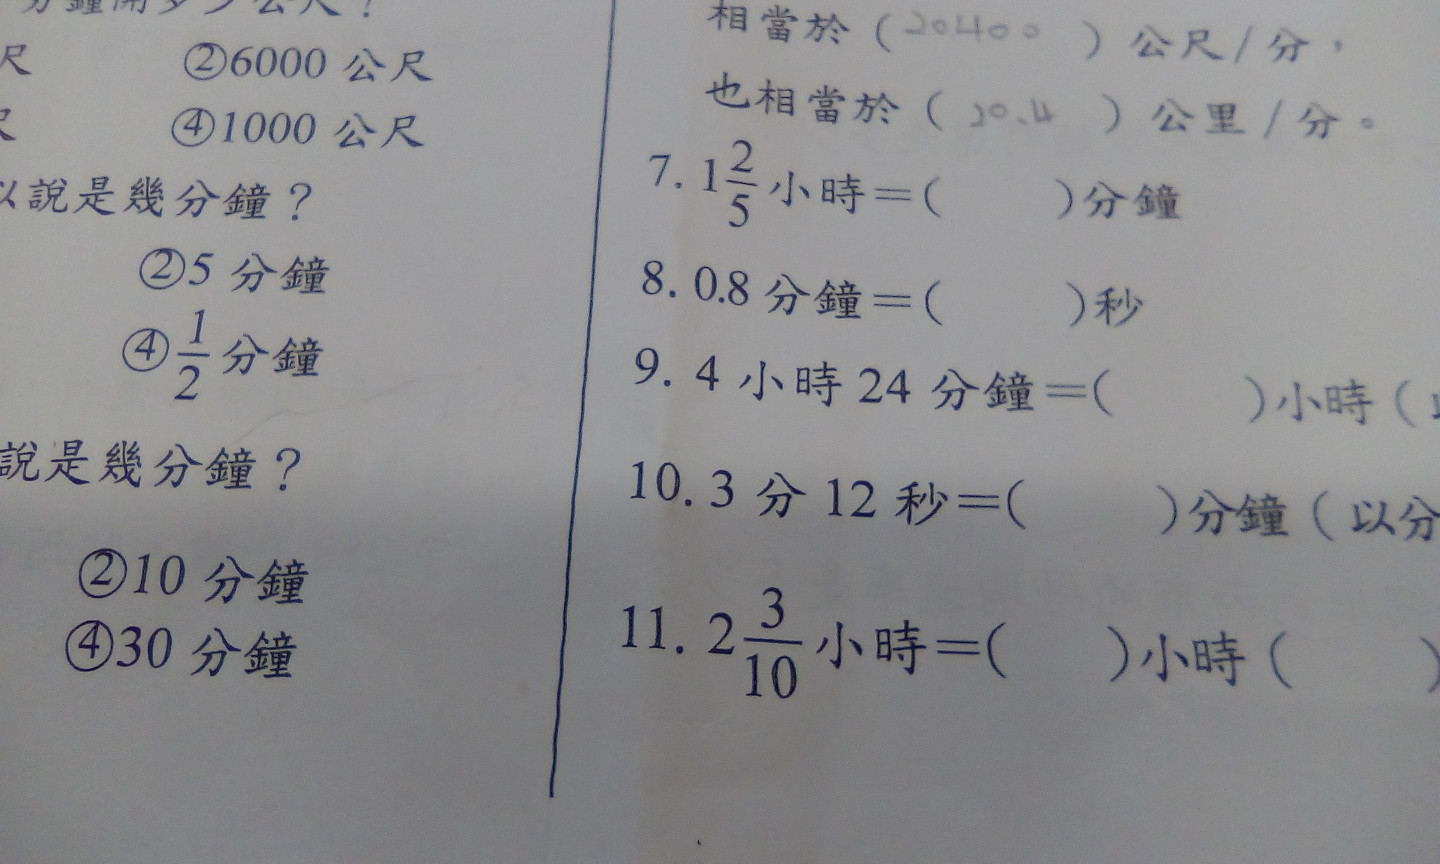 分鐘開多少公尺？
尺 ②6000 公尺
尺 ④1000 公尺
以說是幾分鐘？
②5 分鐘
④1/2 分鐘
說是幾分鐘？
②10 分鐘
④30 分鐘
相當於（20400）公尺/分，
也相當於（20.4）公里/分。
7. 1 2/5 小時＝( )分鐘
8. 0.8 分鐘＝( )秒
9. 4 小時 24 分鐘＝( )小時（
10. 3 分 12 秒＝( )分鐘（以分
11. 2 3/10 小時＝( )小時（ ）